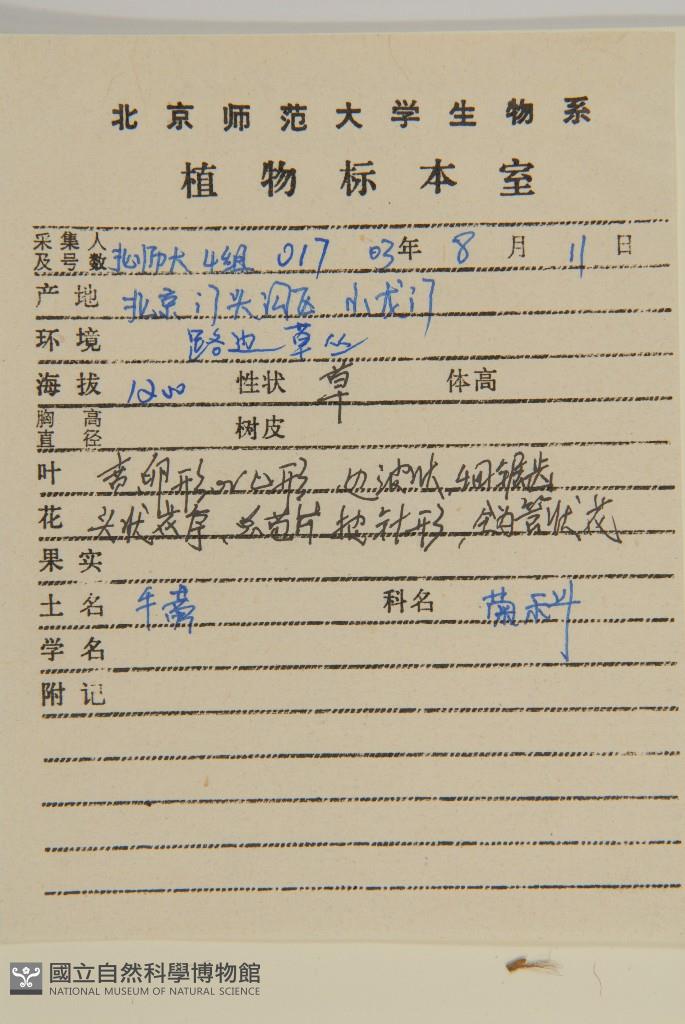 北京师范大学生物系
植物标本室
采集人及号数 北师大 4组 017 03年 8月 11日
产地 北京门头沟区 小龙门
环境 路边草丛
海拔 1200 性状 草 体高
胸高直径 树皮
叶 卵形 心形 边波状 细锯齿
花 头状花序、总苞片披针形，全为管状花
果实
土名 牛蒡 科名 菊科
学名
附记
國立自然科學博物館
NATIONAL MUSEUM OF NATURAL SCIENCE